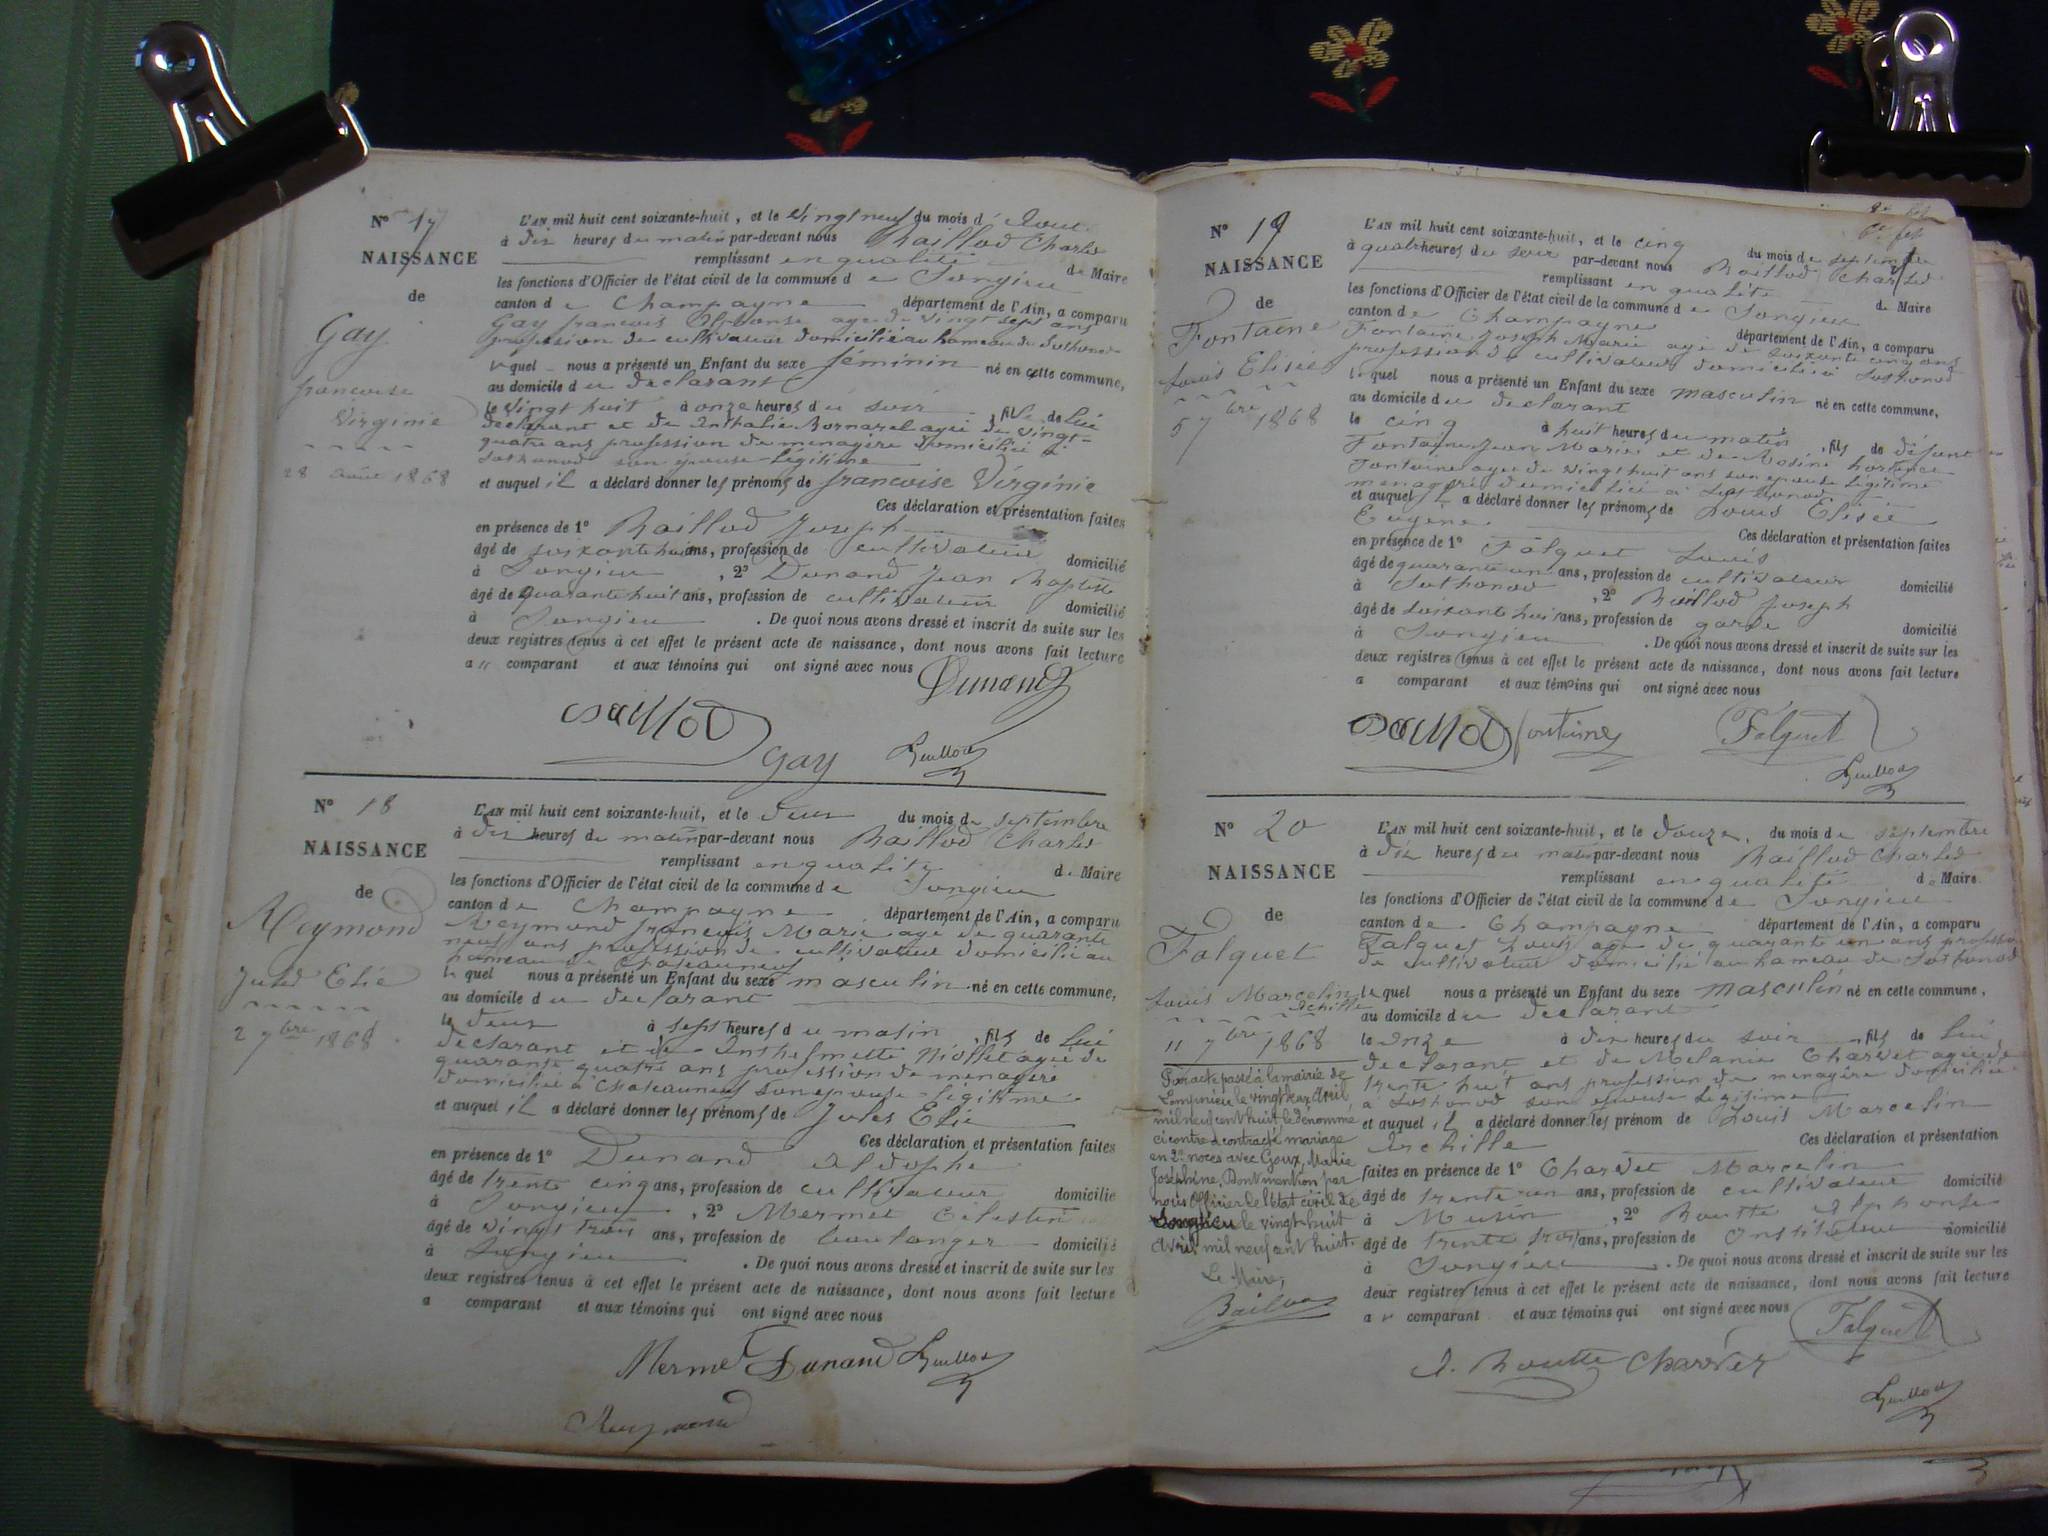 N° 17
NAISSANCE
de
Gay
francoise
Virginie
28 août 1868
L'AN mil huit cent soixante-huit, et le vingt neuf du mois d' Aout
à dix heures du matin par-devant nous Baillod Charles
remplissant en qualité de Maire
les fonctions d'Officier de l'état civil de la commune de Songieu
canton de Champagne département de l'Ain, a comparu
Gay francois Alphonse age de vingt sept ans
profession de cultivateur domicilié au hameau de Sothonod
lequel nous a présenté un Enfant du sexe féminin né en cette commune,
au domicile du declarant
le vingt huit à onze heures du soir fille de lui
declarant et de Anthalie Bornarel agée de vingt-
quatre ans profession de menagère domiciliée à
Sothonod son épouse légitime
et auquel il a déclaré donner les prénoms de francoise Virginie
Ces déclaration et présentation faites
en présence de 1° Baillod Joseph
âgé de soixante huit ans, profession de cultivateur domicilié
à Songieu , 2° Dunand Jean Baptiste
âgé de quarante huit ans, profession de cultivateur domicilié
à Songieu . De quoi nous avons dressé et inscrit de suite sur les
deux registres tenus à cet effet le présent acte de naissance, dont nous avons fait lecture
a u comparant et aux témoins qui ont signé avec nous Dunand
Baillod Gay
N° 18
NAISSANCE
de
Reymond
Jules Elie
2 7bre 1868
L'AN mil huit cent soixante-huit, et le deux du mois de septembre
à dix heures du matin par-devant nous Baillod Charles
remplissant en qualité de Maire
les fonctions d'Officier de l'état civil de la commune de Songieu
canton de Champagne département de l'Ain, a comparu
Reymond françois Marie age de quarante
neuf ans profession de cultivateur domicilié au
hameau de Chateauneuf
lequel nous a présenté un Enfant du sexe masculin né en cette commune,
au domicile du declarant
le deux à sept heures du matin , fils de lui
declarant et de Anthelmette Niollet agée de
quarante quatre ans profession de menagère
domiciliée à Chateauneuf son epouse légitime
et auquel il a déclaré donner les prénoms de Jules Elie
Ces déclaration et présentation faites
en présence de 1° Dunand Aldophe
âgé de trente cinq ans, profession de cultivateur domicilié
à Songieu , 2° Mermet Célestin
âgé de vingt trois ans, profession de boulanger domicilié
à Songieu . De quoi nous avons dressé et inscrit de suite sur les
deux registres tenus à cet effet le présent acte de naissance, dont nous avons fait lecture
a comparant et aux témoins qui ont signé avec nous
Mermet Dunand
Reymond
N° 19
NAISSANCE
de
Fontaine
Louis Elisée
5 7bre 1868
L'AN mil huit cent soixante-huit, et le cinq du mois de septembre
à quatre heures du soir par-devant nous Baillod Charles
remplissant en qualité de Maire
les fonctions d'Officier de l'état civil de la commune de Songieu
canton de Champagne département de l'Ain, a comparu
Fontaine Joseph Marie agé de soixante cinq ans
profession de cultivateur domicilié à Sothonod
lequel nous a présenté un Enfant du sexe masculin né en cette commune,
au domicile du declarant
le cinq à huit heures du matin , fils de défunt
Fontaine Jean Marie et de Rosine hortence
Fontaine agée de vingt huit ans son epouse légitime
menagère domiciliée à Sothonod
et auquel il a déclaré donner les prénoms de Louis Elisée
Eugène. Ces déclaration et présentation faites
en présence de 1° Falquet Louis
âgé de quarante un ans, profession de cultivateur domicilié
à Sothonod , 2° Baillod Joseph
âgé de soixante huit ans, profession de garde domicilié
à Songieu . De quoi nous avons dressé et inscrit de suite sur les
deux registres tenus à cet effet le présent acte de naissance, dont nous avons fait lecture
a comparant et aux témoins qui ont signé avec nous
Baillod fontaine Falquet
N° 20
NAISSANCE
de
Falquet
Louis Marcelin
Achille
11 7bre 1868
Par acte passé à la mairie de
le vingt Avril
mil neuf cent huit, le dénommé
ci contre a contracté mariage
en 2es noces avec Goux, Marie
Joséphine. Dont mention par
nous Officier de l'état civil de
Songieu le vingt-huit
Avril mil neuf cent huit.
Le Maire,
L'AN mil huit cent soixante-huit, et le douze, du mois de septembre
à dix heures du matin par-devant nous Baillod Charles
remplissant en qualité de Maire.
les fonctions d'Officier de l'état civil de la commune de Songieu
canton de Champagne département de l'Ain, a comparu
Falquet Louis age de quarante un ans profession
de cultivateur domicilié au hameau de Sothonod
lequel nous a présenté un Enfant du sexe masculin né en cette commune,
au domicile du declarant
le onze à dix heures du soir , fils de lui
declarant et de Melanie Charvet agée de
trente huit ans profession de menagère domiciliée
à Sothonod son epouse légitime
et auquel il a déclaré donner les prénom de Louis Marcelin
Archille Ces déclaration et présentation
faites en présence de 1° Charvet Marcelin
âgé de trente un ans, profession de cultivateur domicilié
à Musin , 2° Boutte Alphonse
âgé de trente trois ans, profession de Instituteur domicilié
à Songieu . De quoi nous avons dressé et inscrit de suite sur les
deux registres tenus à cet effet le présent acte de naissance, dont nous avons fait lecture
a u comparant et aux témoins qui ont signé avec nous Falquet
A. Boutte Charvet